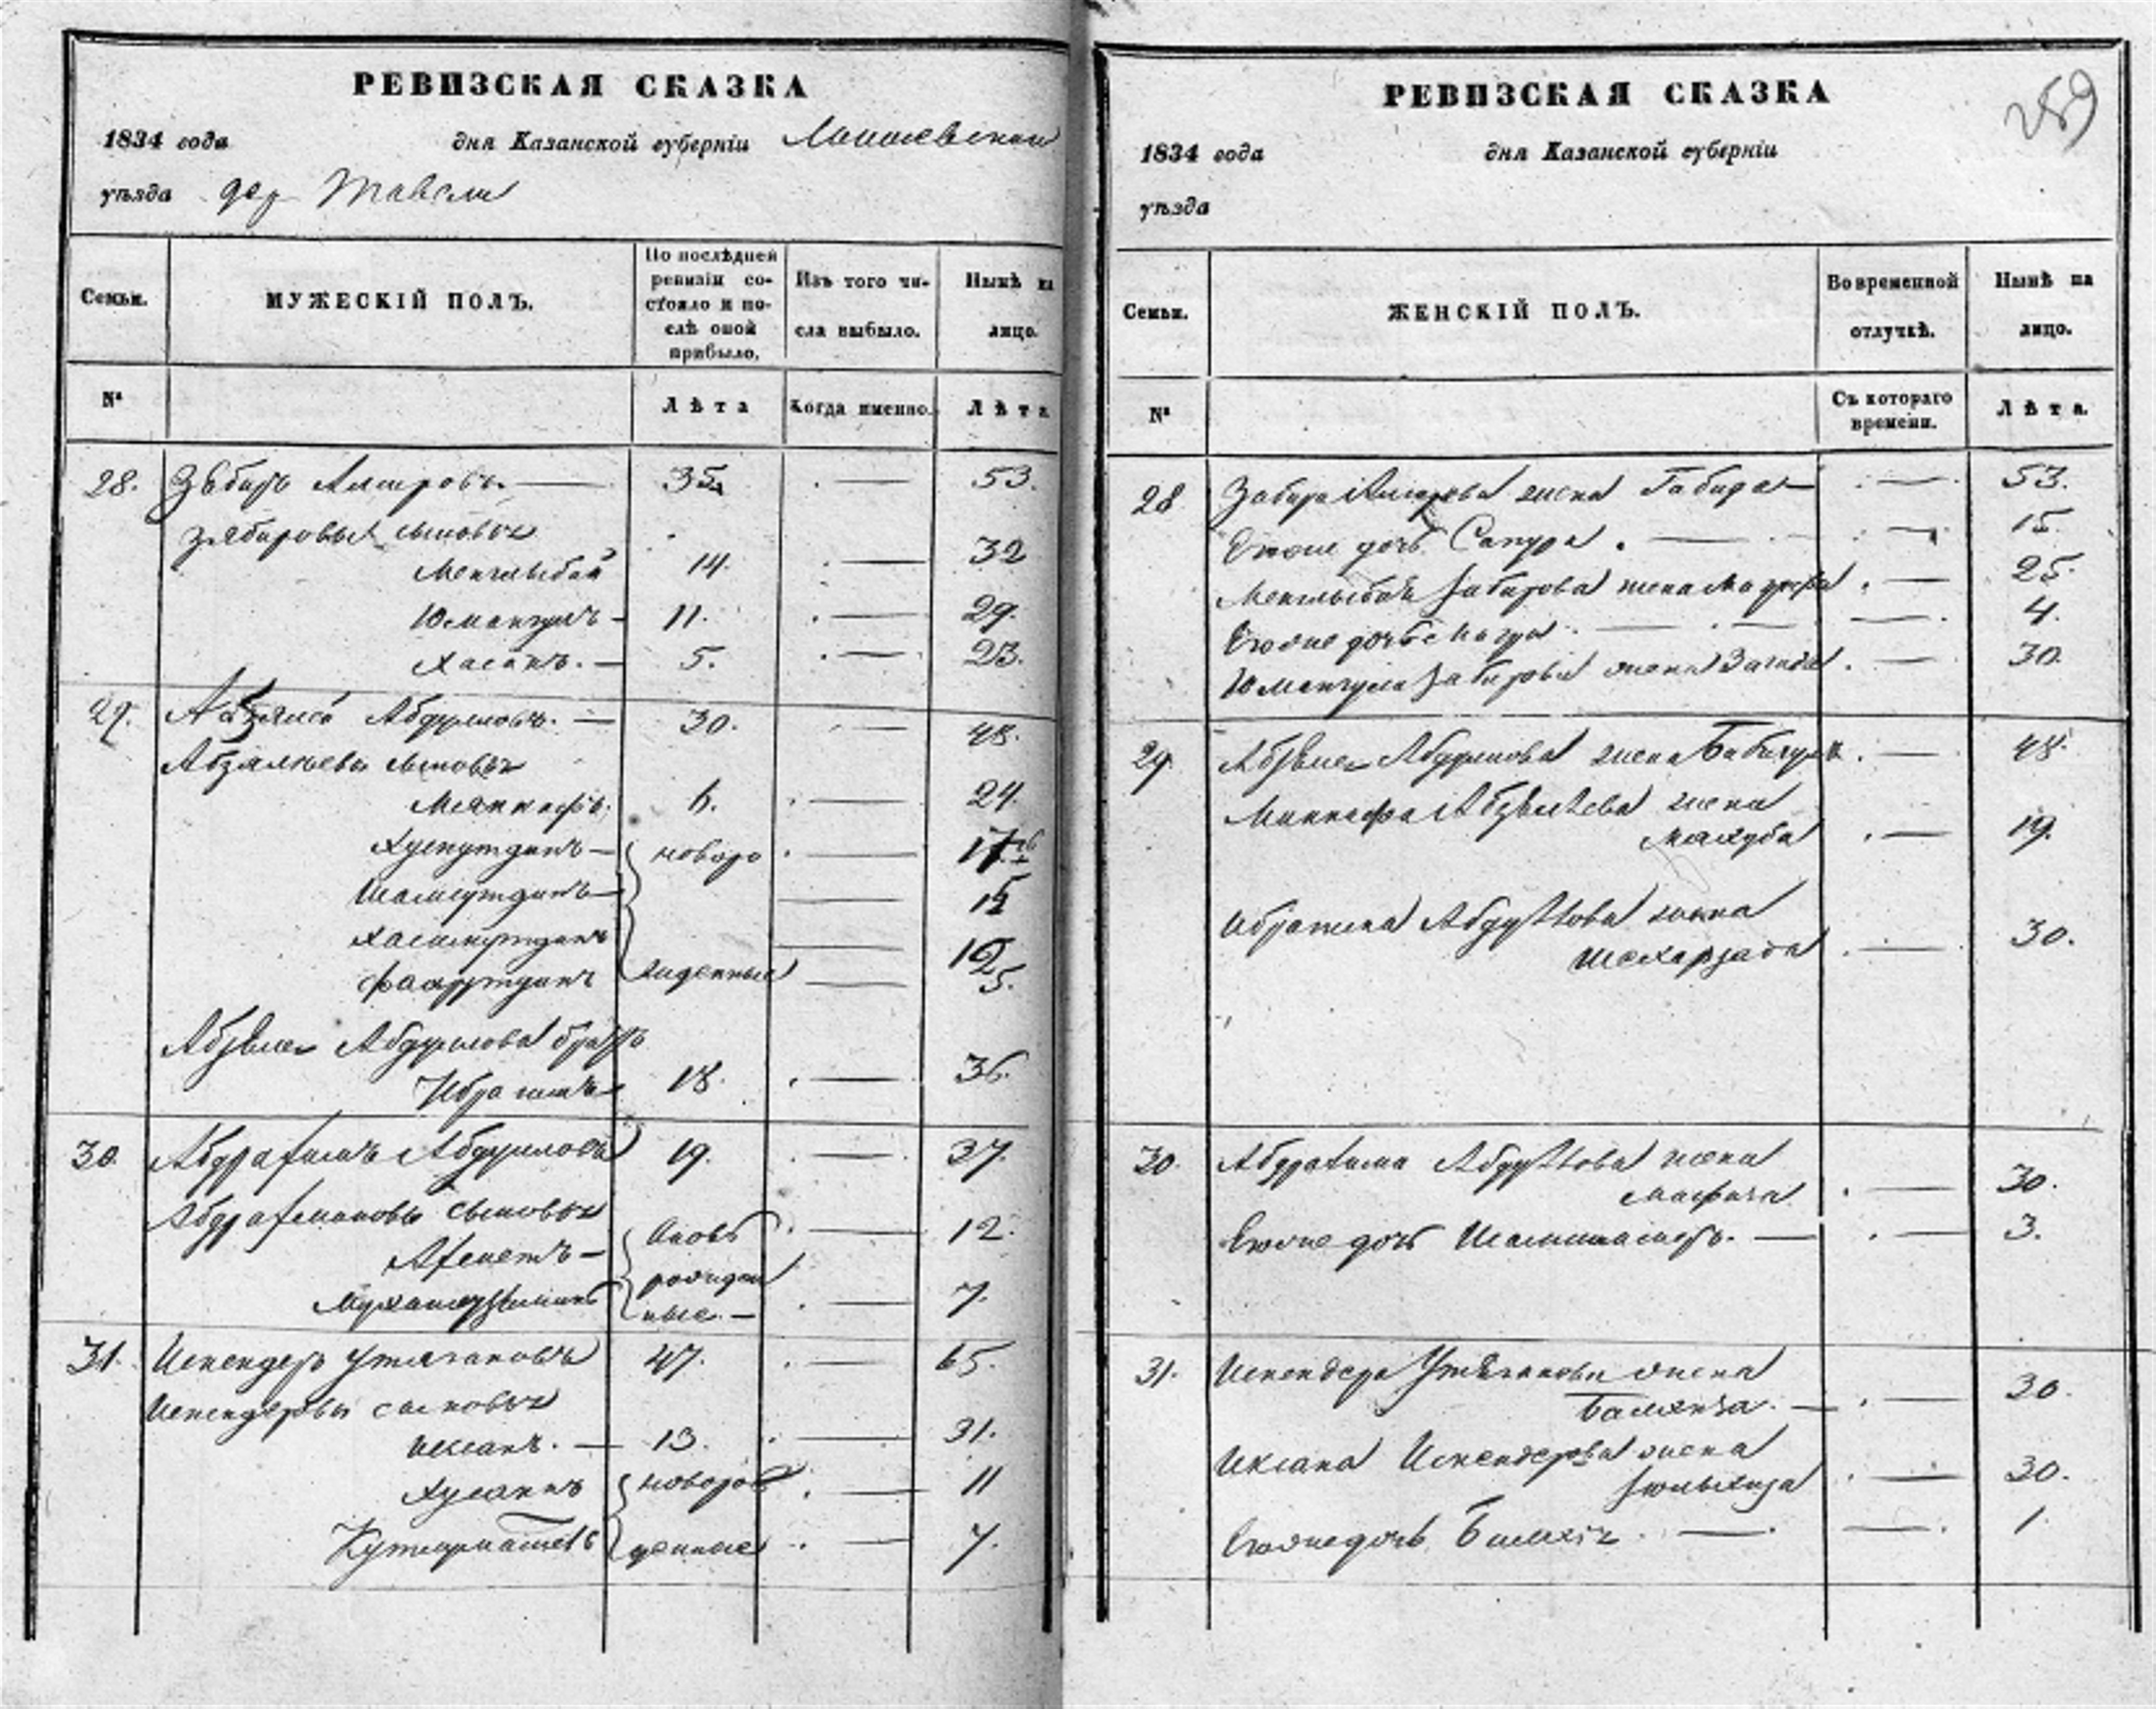 РЕВИЗСКАЯ СКАЗКА
1834 года дня Казанской губерніи Лаишевскаго
уѣзда дер Тавели
Семьи.
МУЖЕСКІЙ ПОЛЪ.
По послѣдней ревизіи состояло и послѣ оной прибыло.
Изъ того числа выбыло.
Нынѣ на лицо.
№
Лѣта
Когда именно.
Лѣта
28. Зѣбирь Амировъ. — 35 — 53.
Зябировы сыновья
Менглыбай 14. — 32
Юмангулъ — 11. — 29.
Хасанъ. — 5. — 23.
29. Абдуловъ. — 30. — 48.
Абзялиевы сыновья
Меннафъ. 6. — 24.
Хуснутдинъ — новоро — 17
Шамсутдинъ — —
Хасамутдинъ —
Фахрутдинъ жденные — 5.
Абдулова братъ
Ибрагимъ 18. — 36.
30. Абдрахимъ Абдуловъ 19. — 37.
Абдрахимовы сыновья
Ахметъ — вновь — 12.
рожден
ные. — — 7.
31. Искендеръ Утягановъ 47. — 65.
Искендеровы сыновья
Иксанъ. — 13. — 31.
Хусаинъ новорож — 11
денные — 7.
РЕВИЗСКАЯ СКАЗКА
259
1834 года дня Казанской губерніи
уѣзда
Семьи.
ЖЕНСКІЙ ПОЛЪ.
Во временной отлучкѣ.
Нынѣ на лицо.
№
Съ котораго времени.
Лѣта.
28 Забира Амирова жена Габида — — 53.
Ево же дочь Сапура. — — 15.
Менглыбая Забирова жена — 25.
Ево же дочь — — 4.
Юмангула Забирова жена Загида. — 30.
29. Абдулова жена Бибигул. — 48.
Миннафа жена
Махуба — 19.
Ибрагима Абдулова жена
Шехарзада — 30.
30. Абдрахима Абдулова жена
30.
Ево же дочь — — 3.
31. Искендера Утяганова жена
— — 30.
Иксана Искендерова жена
Зюльхиза — 30.
Ево же дочь — — 1.